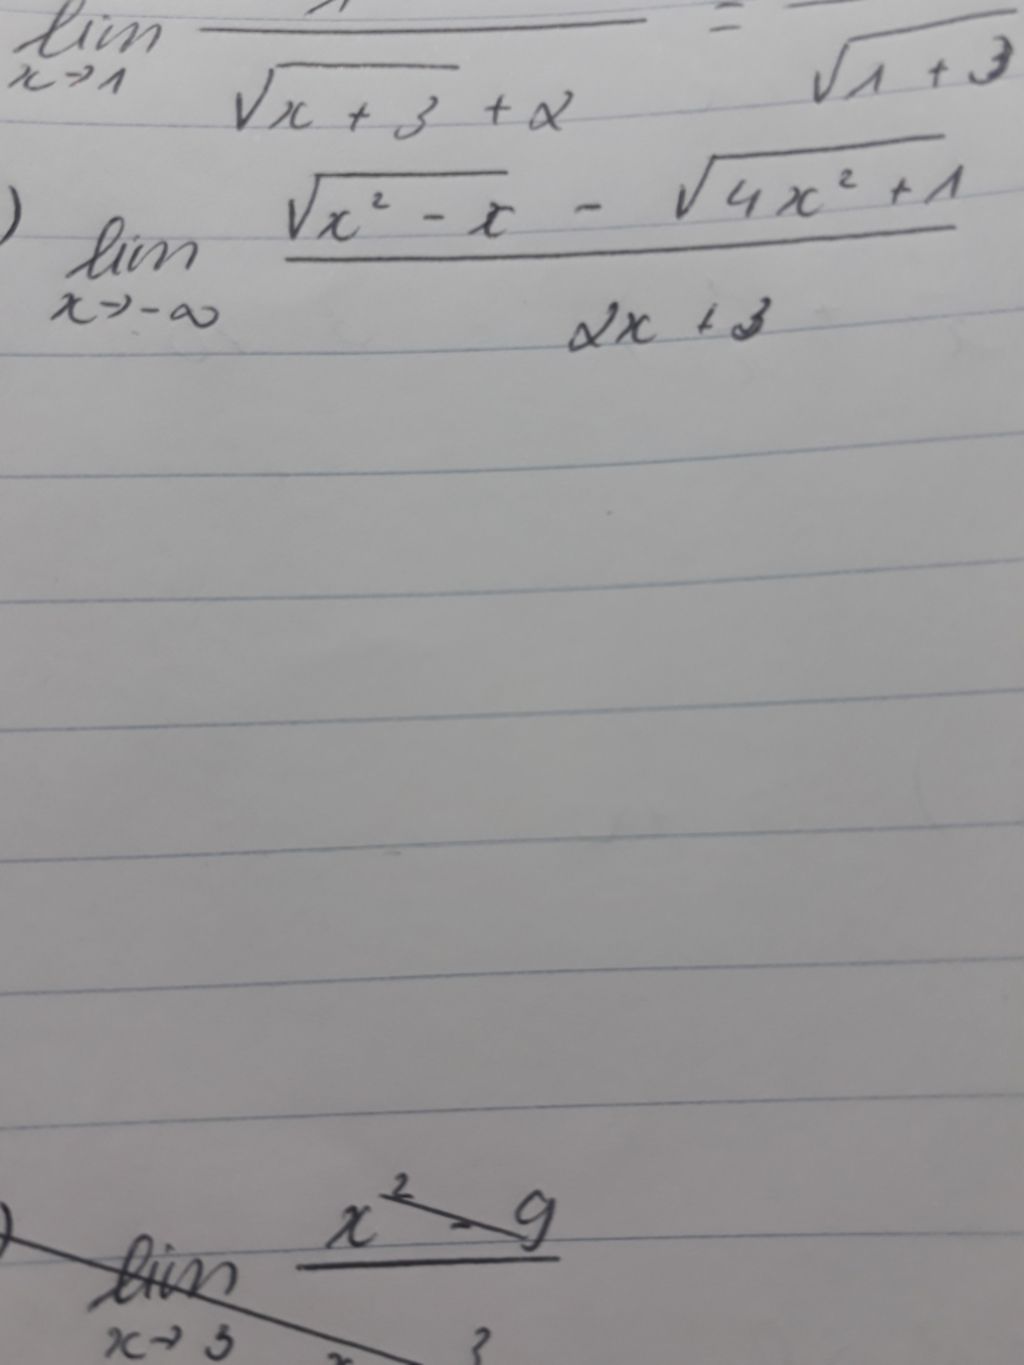 lim x→1 1 / (√(x + 3) + 2) = √(1 + 3
) lim x→-∞ (√(x² - x) - √(4x² + 1)) / (2x + 3)
) lim x→3 x² - 9